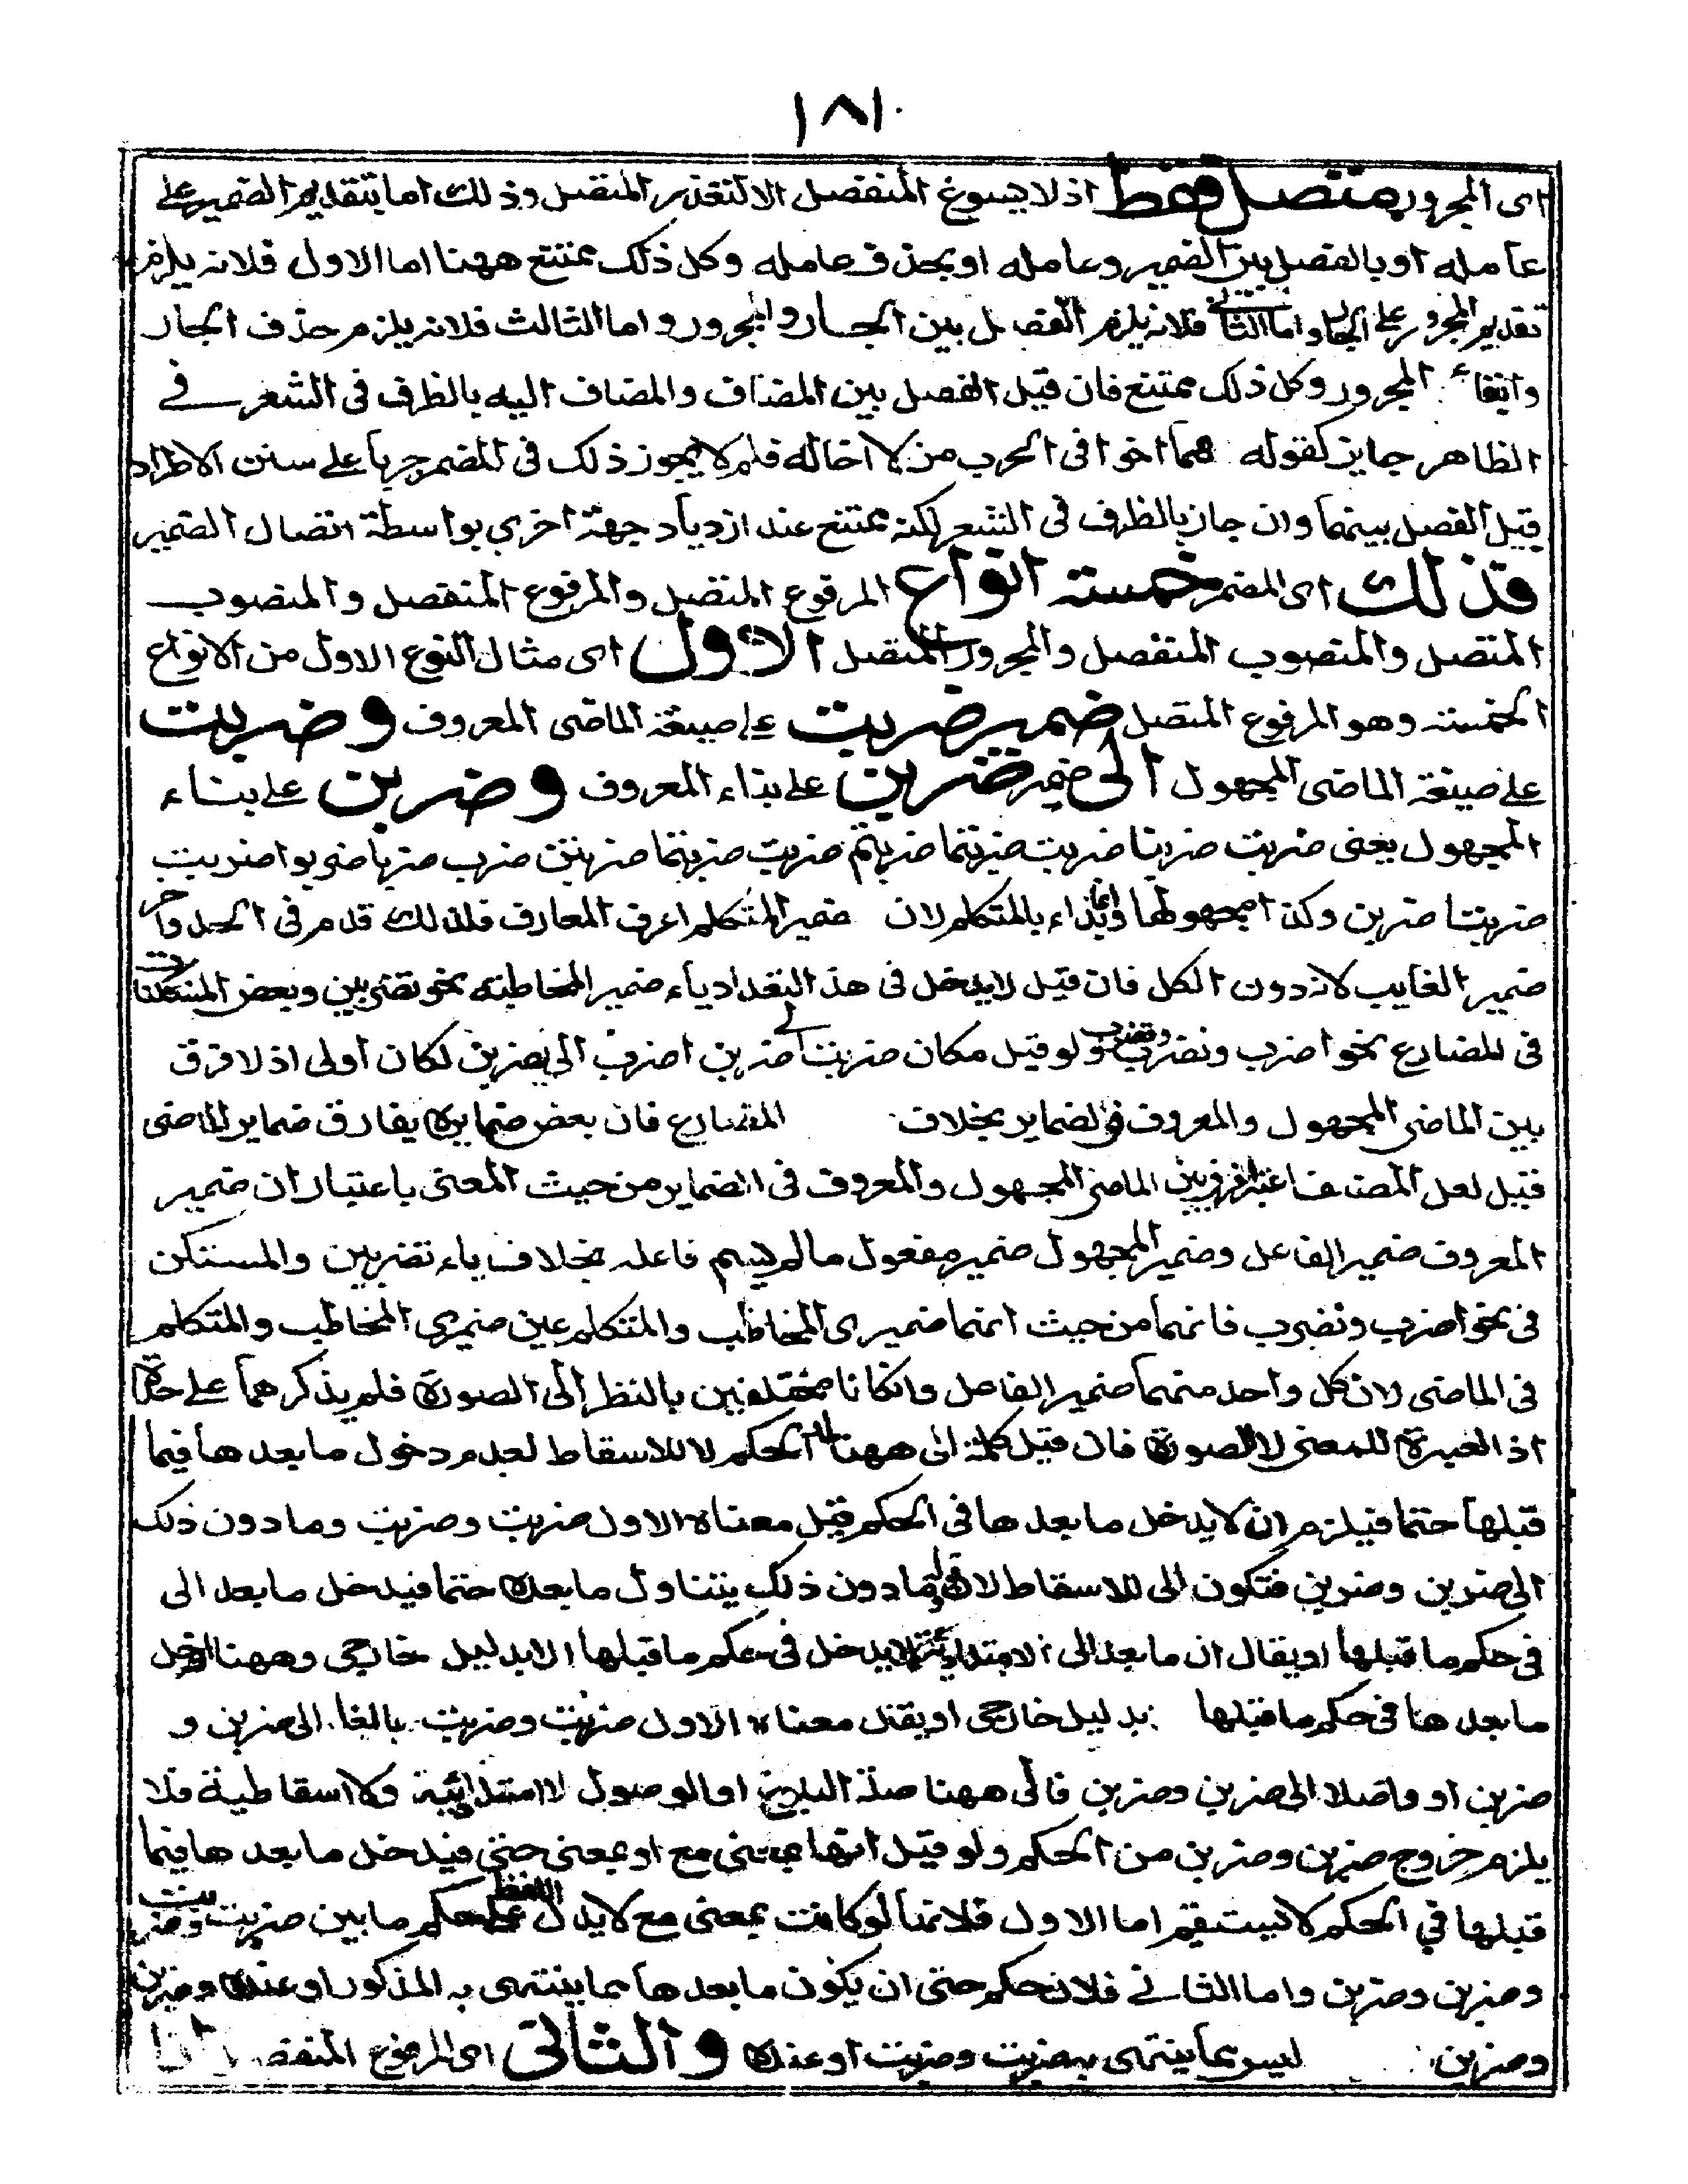 ١٨١
اى المجرور متصل فقط اذ لا يسوغ المنفصل الا لتعذر المتصل وذلك اما بتقديم الضمير على
عامله او بالفصل بين الضمير وعامله او بحذف عامله وكل ذلك ممتنع ههنا اما الاول فلانه يلزم
تقديم المجرور على الجار واما الثانى فلانه يلزم الفصل بين الجار والمجرور واما الثالث فلانه يلزم حذف الجار
وابقاء المجرور وكل ذلك ممتنع فان قيل الفصل بين المضاف والمضاف اليه بالظرف فى الشعر فى
الظاهر جايز كقوله هما اخوا فى الحرب من لا اخا له فلم لا يجوز ذلك فى المضمر جريا على سنن الاطراد
قيل الفصل بينهما وان جاز بالظرف فى الشعر لكنه ممتنع عند ازدياد جهة اخرى بواسطة اتصال الضمير
فذلك اى المضمر خمسة انواع المرفوع المتصل والمرفوع المنفصل والمنصوب
المتصل والمنصوب المنفصل والمجرور المتصل الاول اى مثال النوع الاول من الانواع
الخمسة وهو المرفوع المتصل ضمير ضربت على صيغة الماضى المعروف وضربت
على صيغة الماضى المجهول الى ضمير ضربن على بناء المعروف وضربن على بناء
المجهول يعنى ضربت ضربنا ضربت ضربتما ضربتم ضربت ضربتما ضربتن ضرب ضربا ضربوا ضربت
ضربتا ضربن وكذا مجهولها وانما بداء بالمتكلم لان ضمير المتكلم اعرف المعارف فلذلك قدم فى الحد واخر
ضمير الغايب لانه دون الكل فان قيل لا يدخل فى هذا التعداد ياء ضمير المخاطبة نحو تضربين وبعض المستكنات
فى المضارع نحو اضرب ونضرب وتضرب ولو قيل مكان ضربت الى ضربن اضرب الى يضربن لكان اولى اذ لا فرق
بين الماضى المجهول والمعروف فى الضماير بخلاف المضارع فان بعض ضمايره يفارق ضماير الماضى
قيل لعل المصنف اعتبر الفرق بين الماضى المجهول والمعروف فى الضماير من حيث المعنى باعتبار ان ضمير
المعروف ضمير الفاعل وضمير المجهول ضمير مفعول ما لم يسم فاعله بخلاف ياء تضربين والمستكن
فى نحو اضرب وتضرب فانهما من حيث انهما ضميرى المخاطب والمتكلم عين ضميرى المخاطب والمتكلم
فى الماضى لان كل واحد منهما ضمير الفاعل وان كانا مختلفين بالنظر الى الصورة فلم يذكرهما على حدة
اذ العبرة للمعنى لا للصورة فان قيل كلمة الى ههنا لمد الحكم لا للاسقاط لعدم دخول ما بعدها فيما
قبلها حتما فيلزم ان لا يدخل ما بعدها فى الحكم قيل معناه الاول ضربت وضربت وما دون ذلك
الى ضربن وضربن فتكون الى للاسقاط لان قوله ما دون ذلك يتناول ما بعده حتما فيدخل ما بعد الى
فى حكم ما قبلها او يقال ان ما بعد الى الامتدادية لا يدخل فى حكم ما قبلها الا بدليل خارجى وههنا ادخل
ما بعدها فى حكم ما قبلها بدليل خارجى او يقال معناه الاول ضربت وضربت بالغا الى ضربن و
ضربن او واصلا الى ضربن وضربن فالى ههنا صلة البلوغ او الوصول لا امتدادية ولا اسقاطية فلا
يلزم خروج ضربن وضربن من الحكم ولو قيل انها بمعنى مع او بمعنى حتى فيدخل ما بعدها فيما
قبلها فى الحكم لا يستقيم اما الاول فلانها لو كانت بمعنى مع لا يدل اللفظ على حكم ما بين ضربت وضربت
وضربن وضربن واما الثانى فلان حكم حتى ان يكون ما بعدها مما ينتهى به المذكور او عنده وضربن
وضربن ليس مما ينتهى به ضربت وضربت او عنده والثانى اى المرفوع المنفصل انا